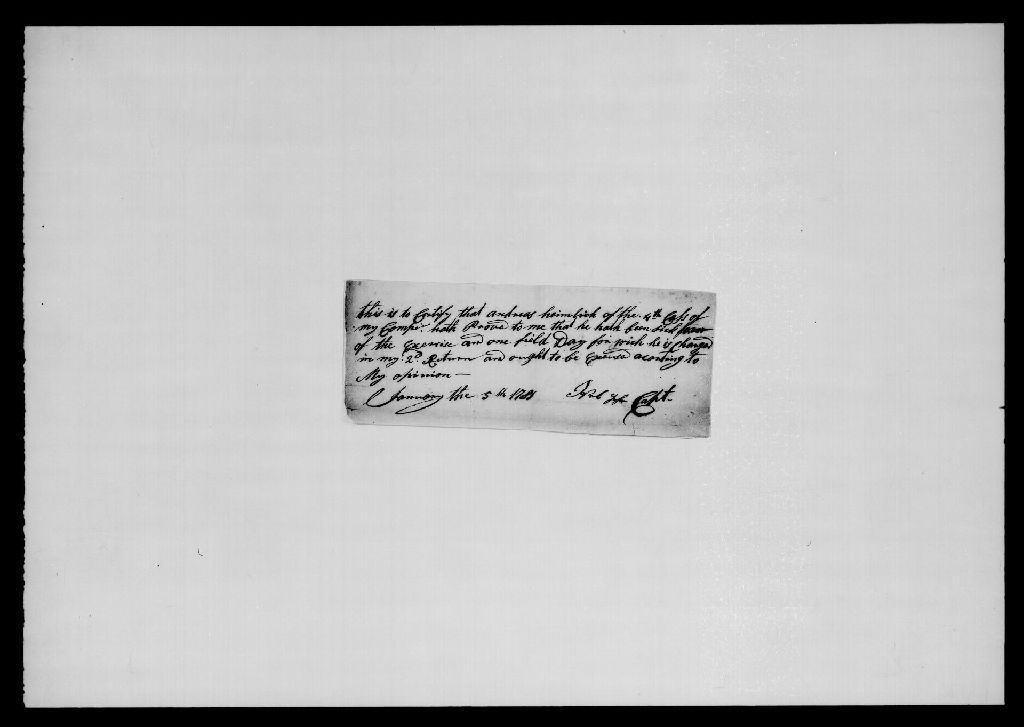 this is to Certify that andreas heimlich of the 4th Class of
my Compy. hath Proove to me that he hath been Sick
of the Exercise and one field Day for wich he is Charged
in my 2d. Return and ought to be Excused acorting to
My opinion —
January the 5th Capt.